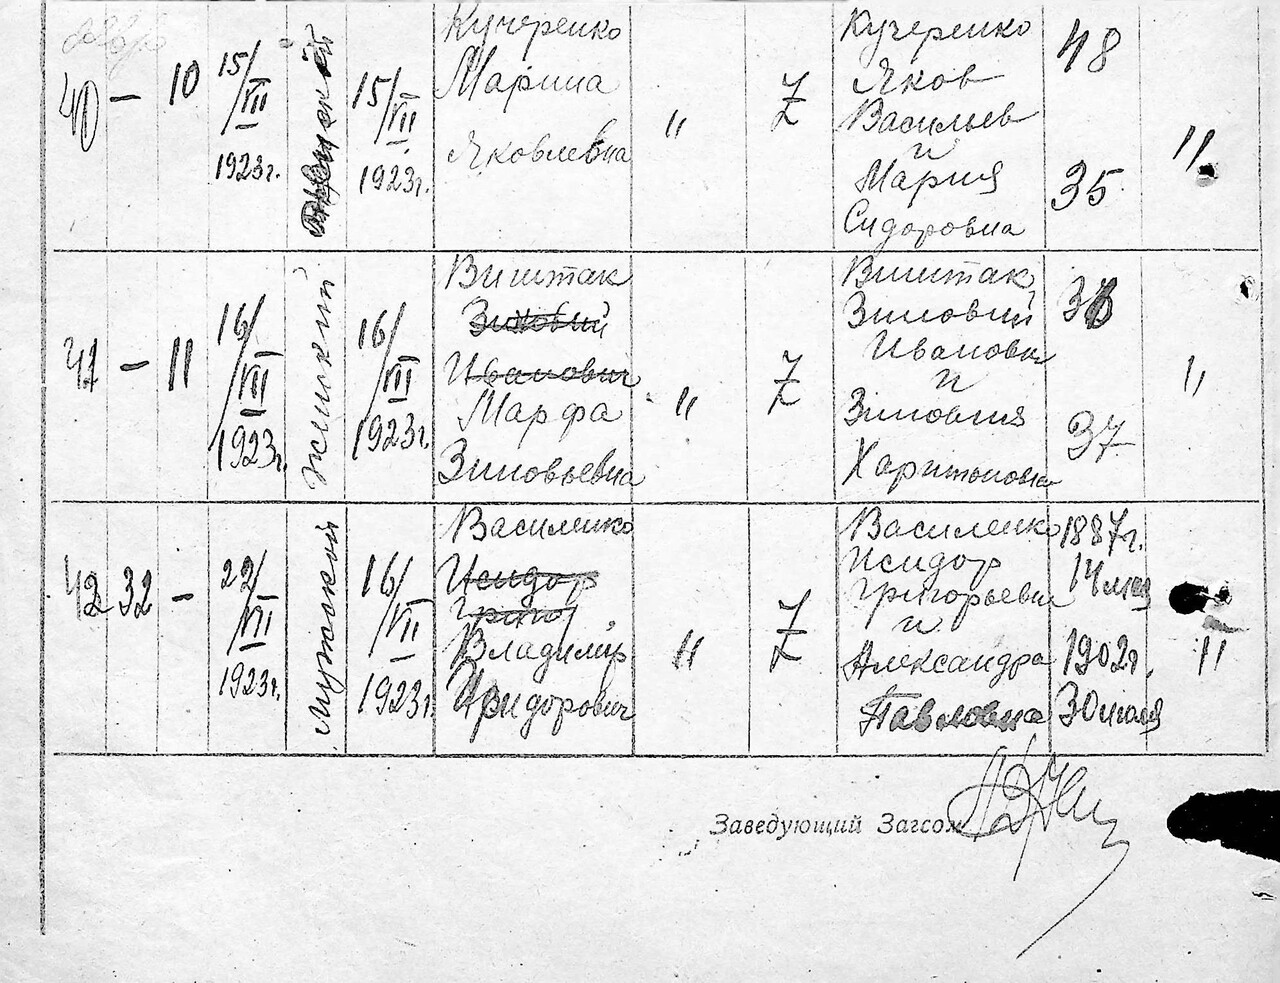 40 — 10 15/VII 1923г. женский 15/VII 1923г.
Кучеренко
Марина
Яковлевна
"
7
Кучеренко
Яков
Васильев
и
Мария
Сидоровна
48
35
"
41 — 11 16/VII 1923г. женский 16/VII 1923г.
Виштак
Зиновий
Иванович
Марфа
Зиновьевна
"
7
Виштак
Зиновий
Иванович
и
Зиновия
Харитоновна
37
"
42 32 — 22/VII 1923г. мужской 16/VII 1923г.
Василенко
Исидор
Григор
Владимир
Исидорович
"
7
Василенко
Исидор
Григорьевич
и
Александра
Павловна
1887г.
14 мая
1902г.
30 июля
"
Заведующий Загсом